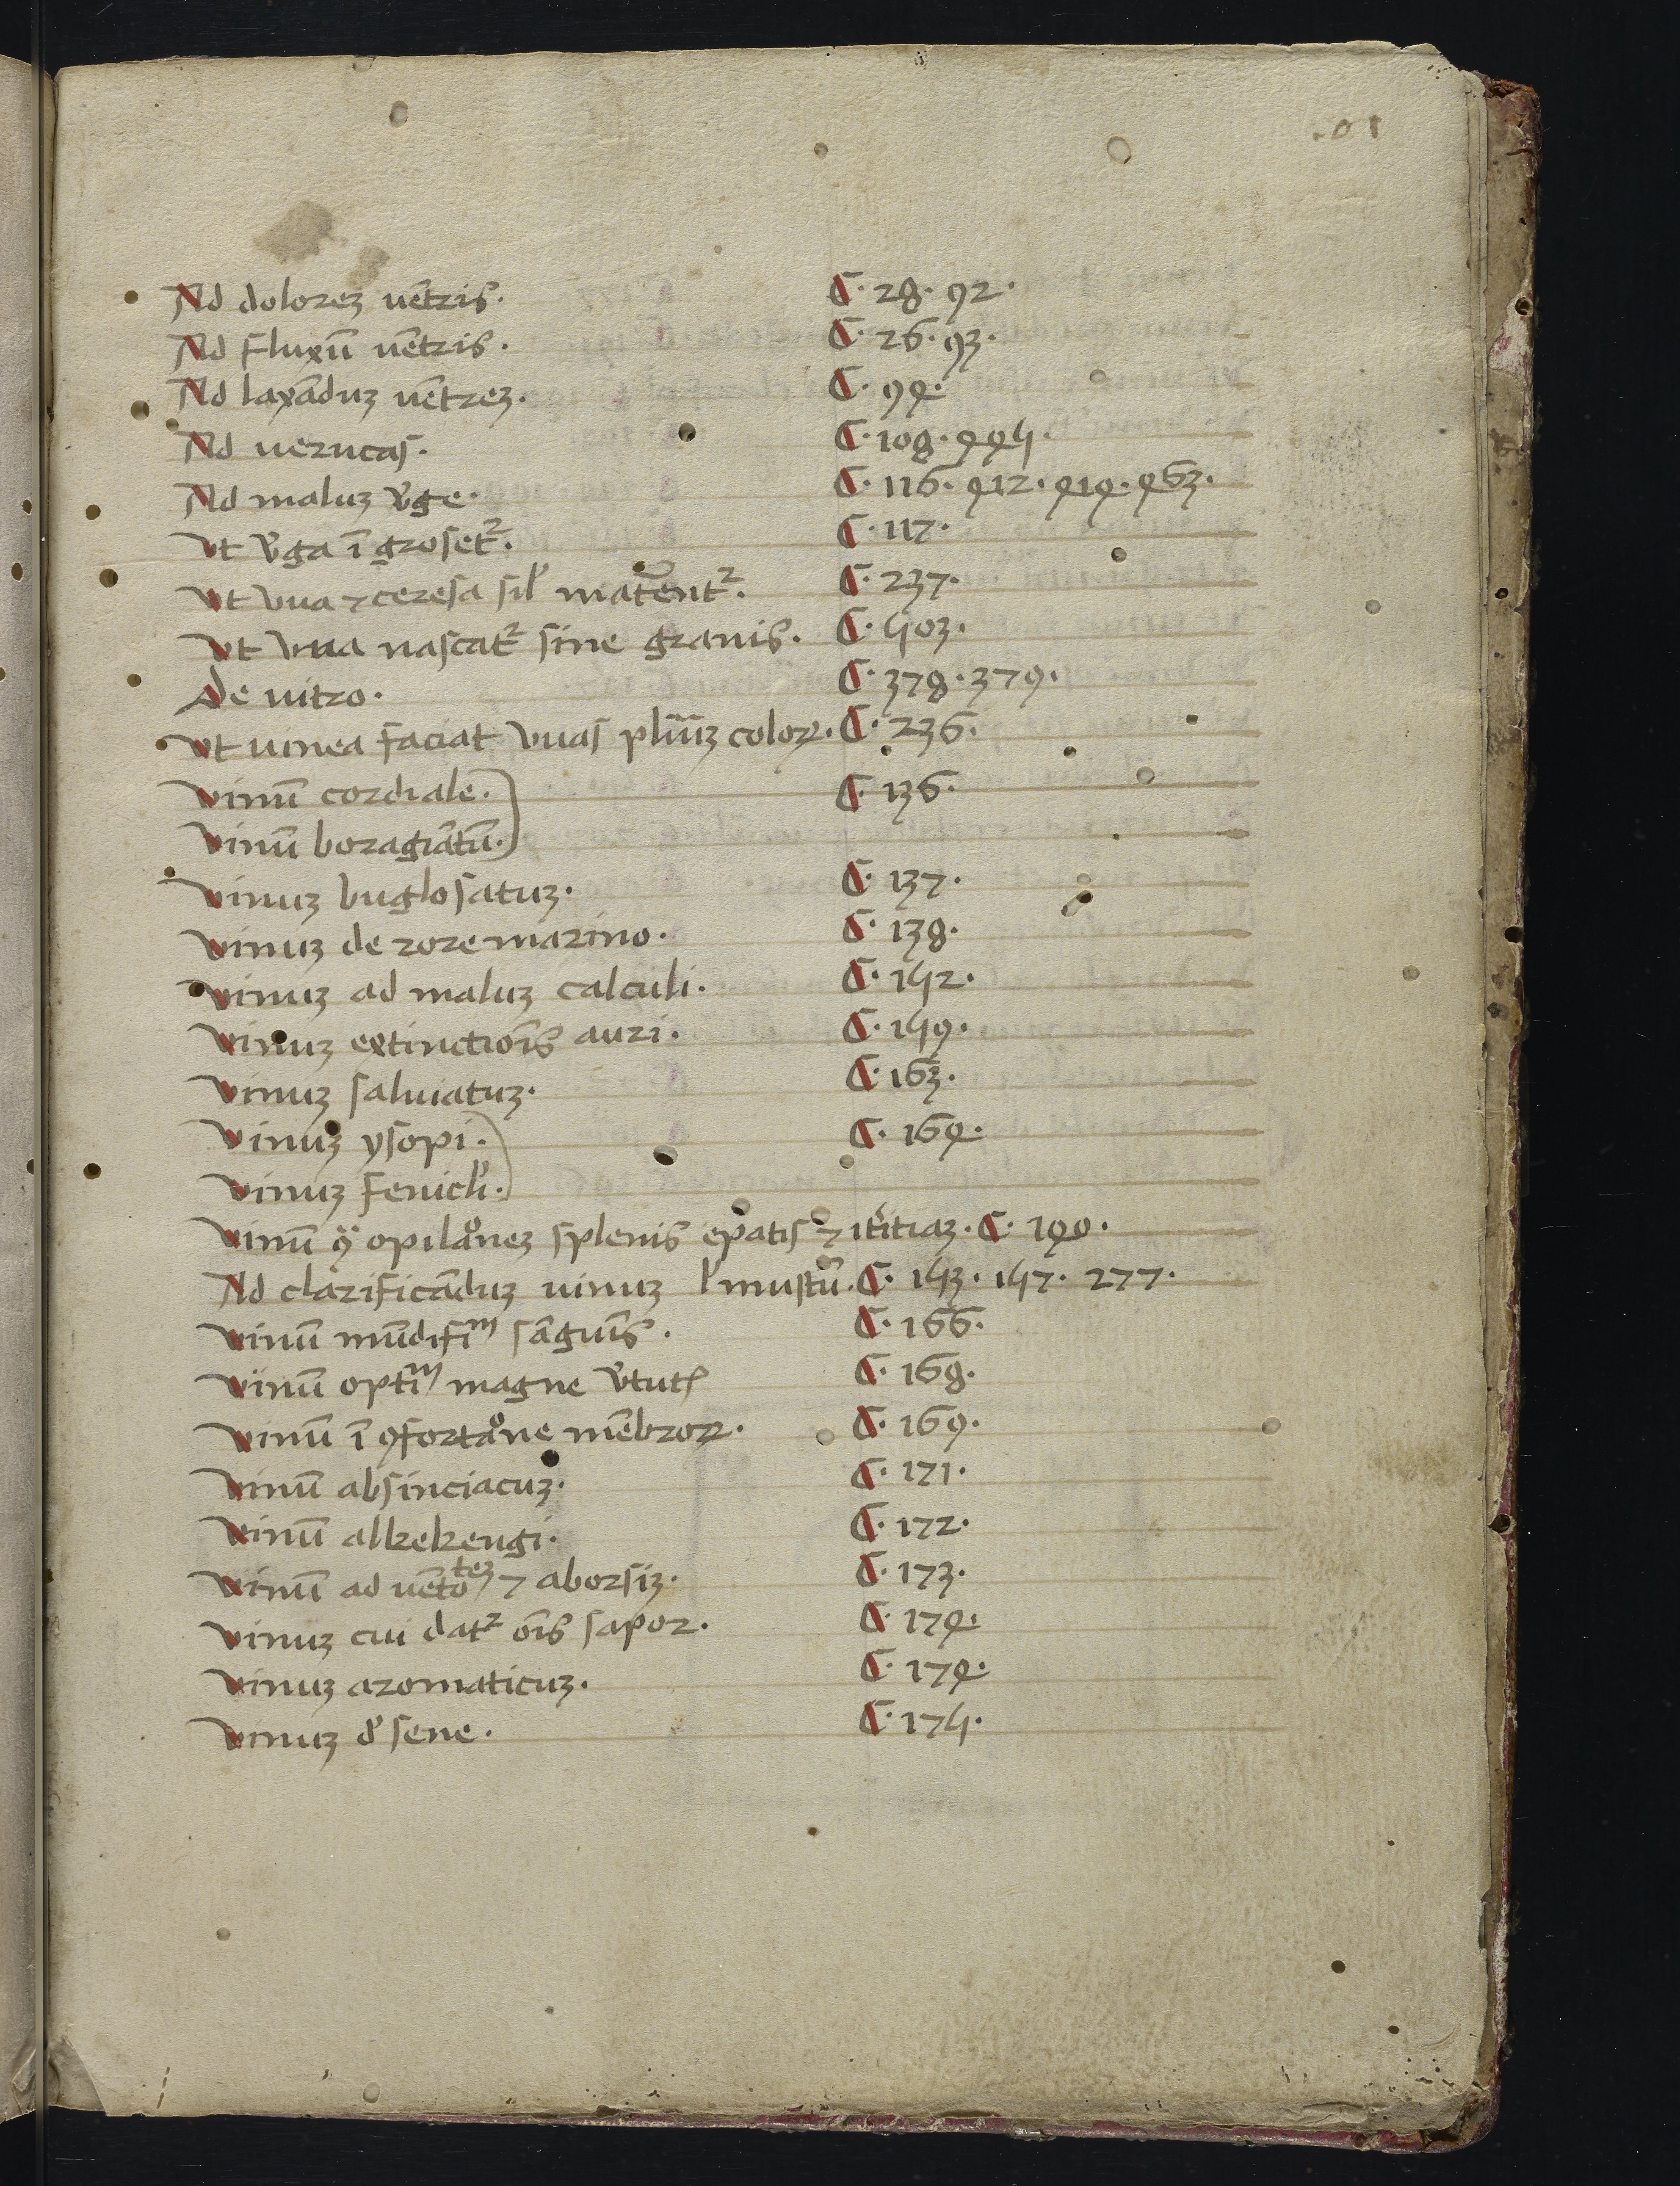 Ad doloreꝫ uētris. C. 28. 92.
Ad fluxū uētris. C. 26. 93.
Ad laxāduꝫ uētreꝫ. C. 94.
Ad uerucas. C. 108. 445.
Ad maluꝫ v̓ge. C. 116. 412. 414. 463.
Vt v̓ga ī groset². C. 117.
Vt vua ⁊ ceresa sil̓ mat̄ent². C. 237.
Vt vua nascat² sine granis. C. 503.
De uitro. C. 378. 379.
Vt uinea faciat vuas pluīꝫ coloꝝ. C. 236.
Vinū cordiale. C. 136.
Vinū boragiātū.
Vinuꝫ buglosatuꝫ. C. 137.
Vinuꝫ de rore marino. C. 138.
Vinuꝫ ad maluꝫ calculi. C. 152.
Vinuꝫ extinctiōis auri. C. 159.
Vinuꝫ saluiatuꝫ. C. 163.
Vinuꝫ ysopi. C. 164.
Vinuꝫ fenicl̓i.
Vinū ꝯͣ opilaͦneꝫ splenis epatis ⁊ itͥitiaꝫ. C. 140.
Ad clarificāduꝫ uinuꝫ l̓ mustū. C. 153. 157. 277.
Vinū mūdifiᵐ sāguīs. C. 166.
Vinū optiᵐ magne v̓tutꝭ C. 168.
Vinū ī ꝯfortaͦne mēbroꝝ. C. 169.
Vinū absinciacuꝫ. C. 171.
Vinū alkekengi. C. 172.
Vinū ad uētoᵗᵉᶻ ⁊ aborsiꝫ. C. 173.
Vinuꝫ cui dat² oīs sapor. C. 174.
Vinuꝫ aromaticuꝫ. C. 174.
Vinuꝫ d̓ sene. C. 175.